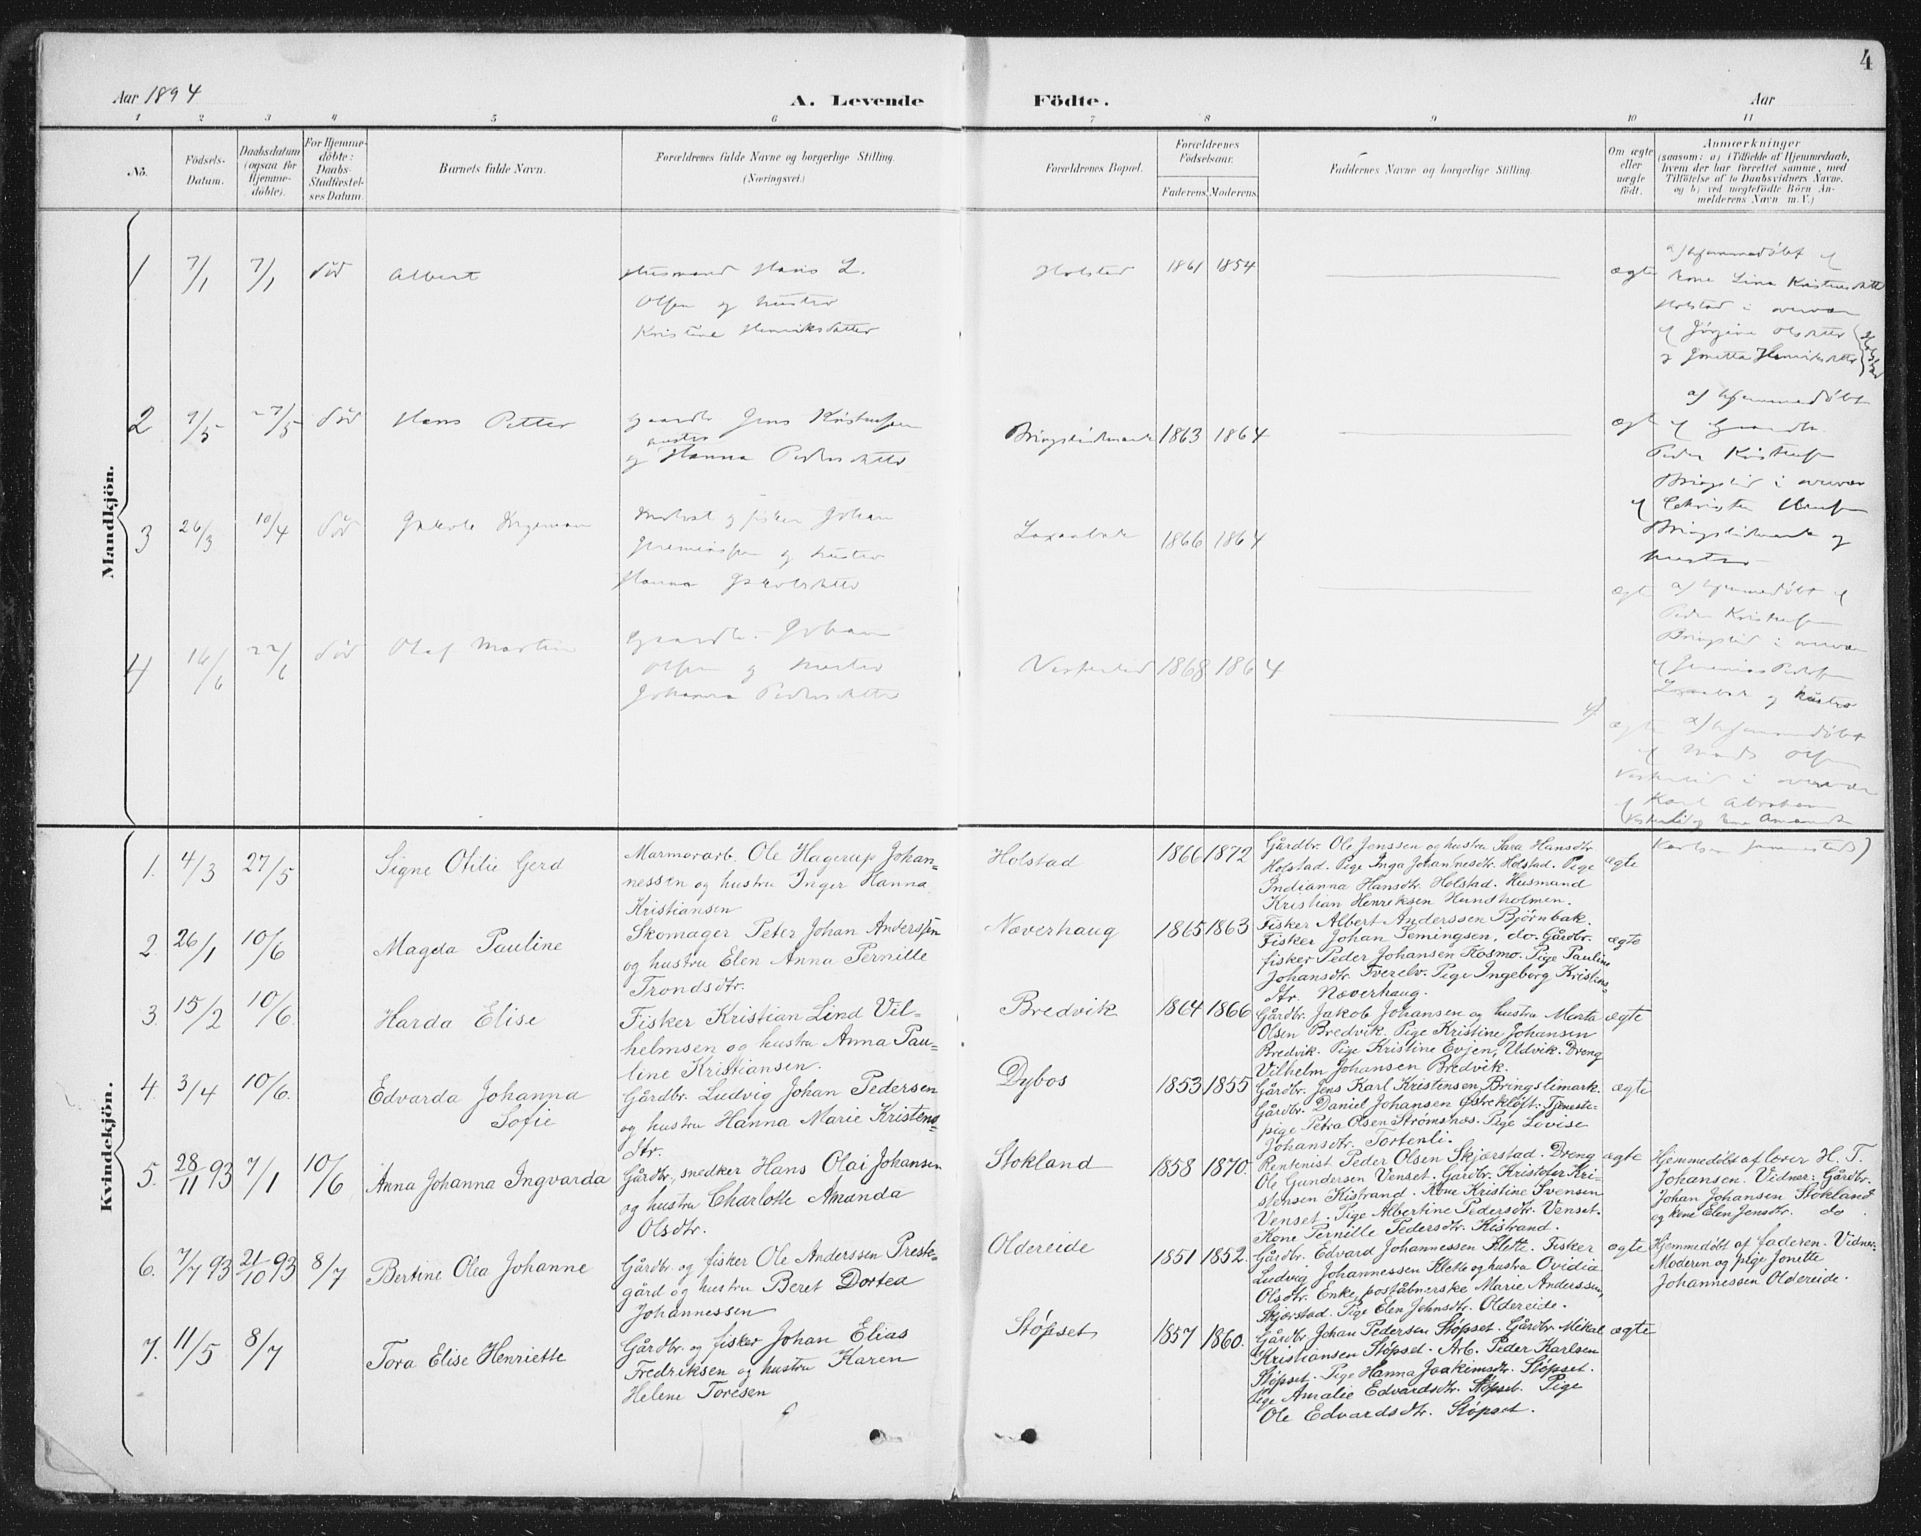 4
Aar 1894
A. Levende Födte.
Aar
1 2 3 4 5 6 7 8 9 10 11
No.
Födsels-Datum.
Daabsdatum (ogsaa for Hjemmedöbte).
For Hjemmedöbte: Daabs-Stadfæstelses Datum.
Barnets fulde Navn.
Forældrenes fulde Navne og borgerlige Stilling.
(Næringsvei.)
Forældrenes Bopæl.
Forældrenes Födselsaar.
Faderens. Moderens.
Faddernes Navne og borgerlige Stilling.
Om ægte eller uægte födt.
Anmærkninger
(saasom: a) i Tilfælde af Hjemmedaab, hvem der har forrettet samme, med Tilföielse af to Daabsvidners Navne. og b) ved uægtefödte Börn Anmelderens Navn m.V.)
Mandkjön.
1 7/1 7/1 død Albert
Husmand Hans L.
Olsen og hustru
Kristine Henriksdatter
Holstad 1861 1854 ægte
a) hjemmedøbt af
kone Lina
Holstad i overvær
af Jørgine Olsdatter
og Jonetta Henriksdatter
2 9/5 27/5 død Hans Petter
Gaardbr Jens Kristensen
og hustru Hanna Pedersdatter
Bringslimark 1863 1864 ægte
a) hjemmedøbt
af Gaardbr.
Peder Kristensen
Bringsli i overvær
af Christen
Bringslimark og
hustru
3 26/3 10/4 død Jakob
og fisker Johan
Jeremiassen og hustru
Hanna Jakobsdatter
Laxaabak 1866 1864 ægte
a) hjemmedøbt af
Peder Kristensen
Bringsli i overvær
af Jeremias
Laxaabak og hustru
4 16/6 22/6 død Olaf Martin
Gaardbr. Johan
Olsen og hustru
Johanna Pedersdatter
Vesterli 1868 1864 ægte
a) hjemmedøbt
af Mads Olsen
Vesterli i overvær
af Karl Abraham
Vesterli og kone Amanda
Karlsen
Kvindekjön.
1. 4/3 27/5 Signe Otilie Gerd
Marmorarb. Ole Hagerup Johan-
nessen og hustru Inger Hanna
Kristiansen
Holstad 1866 1872
Gårdbr. Ole Jenssen og hustru Sara Hansdtr.
Holstad. Pige Inga Johannesdtr. Holstad. Pige
Indianna Hansdtr. Holstad. Husmand
Kristian Henriksen Hundholmen.
ægte
2. 26/1 10/6 Magda Pauline
Skomager Peter Johan Anderssen
og hustru Elen Anna Pernille
Trondsdtr.
Næverhaug 1865 1863
Fisker Albert Anderssen Bjørnbak.
Fisker Johan Temingsen, do. Gårdbr.
fisker Peder Johansen Kosmo. Pige Pauline
Johansdtr. Tverelv. Pige Ingeborg Kristens-
dtr. Næverhaug.
ægte
3. 15/2 10/6 Harda Elise
Fisker Kristian Lind Vil-
helmsen og hustru Anna Pau-
line Kristiansen.
Bredvik 1864 1866
Gårdbr. Jakob Johansen og hustru Marta
Olsen Bredvik. Pige Kristine Johansen
Bredvik. Pige Kristine Evjen, Udvik. Dreng
Vilhelm Johansen Bredvik.
ægte
4. 3/4 10/6 Edvarda Johanna
Sofie
Gårdbr. Ludvig Johan Pedersen
og hustru Hanna Marie Kristens-
dtr.
Dybos 1853 1855
Gårdbr. Jens Karl Kristensen Bringslimark.
Gårdbr. Daniel Johansen Østrekløft. Tjeneste-
pige Petra Olsen Strømsnes. Pige Lovise
Johansdtr. Tortenli.
ægte
5. 28/11 93 7/1 10/6 Anna Johanna Ingvarda
Gårdbr., snedker Hans Olai Johansen
og hustru Charlotte Amanda
Olsdtr.
Stokland 1858 1870.
Rentenist Peder Olsen Skjærstad. Dreng
Ole Gundersen Venset. Gårdbr. Kristofer Kri-
stensen Kistrand. Kone Kristine Svensen
Venset. Pige Albertine Pedersdtr. Venset.
Kone Pernille Pedersdtr. Kistrand.
ægte
Hjemmedøbt af lærer H. T.
Johansen. Vidner: Gårdbr.
Johan Johansen Stokland
og kone Elen Jensdtr. do.
6. 7/7 93 21/10 93 8/7 Bertine Olea Johanne
Gårdbr. og fisker Ole Anderssen Preste-
gård og hustru Beret Dortea
Johannessen
Oldereide 1851 1852.
Gårdbr. Edvard Johannessen Klette. Fisker
Ludvig Johannessen Klette og hustru Ovidia
Olsdtr. Enke, poståbnerske Marie Anderssen,
Skjerstad. Pige Elen Johnsdtr. Oldereide.
ægte
Hjemmedøbt af faderen. Vidner:
Moderen og pige Jonette
Johannessen Oldereide.
7. 11/5 8/7 Tora Elise Henriette
Gårdbr. og fisker Johan Elias
Fredriksen og hustru Karen
Helene Toresen
Støpset 1857 1860.
Gårdbr. Johan Pedersen Støpset. Gårdbr. Mikal
Kristiansen Støpset. Arb. Peder Karlsen
Støpset. Pige Hanna Joakimsdtr. Støpset.
Pige Amalie Edvardsdtr. Støpset. Pige
Ole Edvardsdtr. Støpset.
ægte